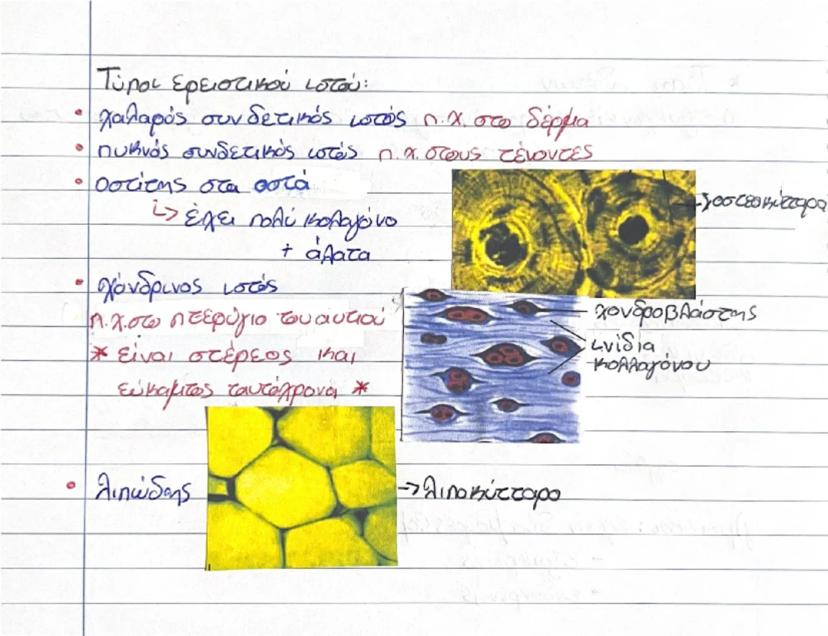 Τύποι ερειστικού ιστού:
• χαλαρός συνδετικός ιστός π.χ. στο δέρμα
• πυκνός συνδετικός ιστός π.χ. στους τένοντες
• οστίτης στα οστά
↳ έχει πολύ κολαγόνο
+ άλατα
οστεοκύτταρα
• χόνδρινος ιστός
π.χ. στο πτερύγιο του αυτιού
* είναι στέρεος και
εύκαμπτος ταυτόχρονα *
χονδροβλάστης
ινίδια
κολλαγόνου
• λιπώδης → λιποκύτταρο